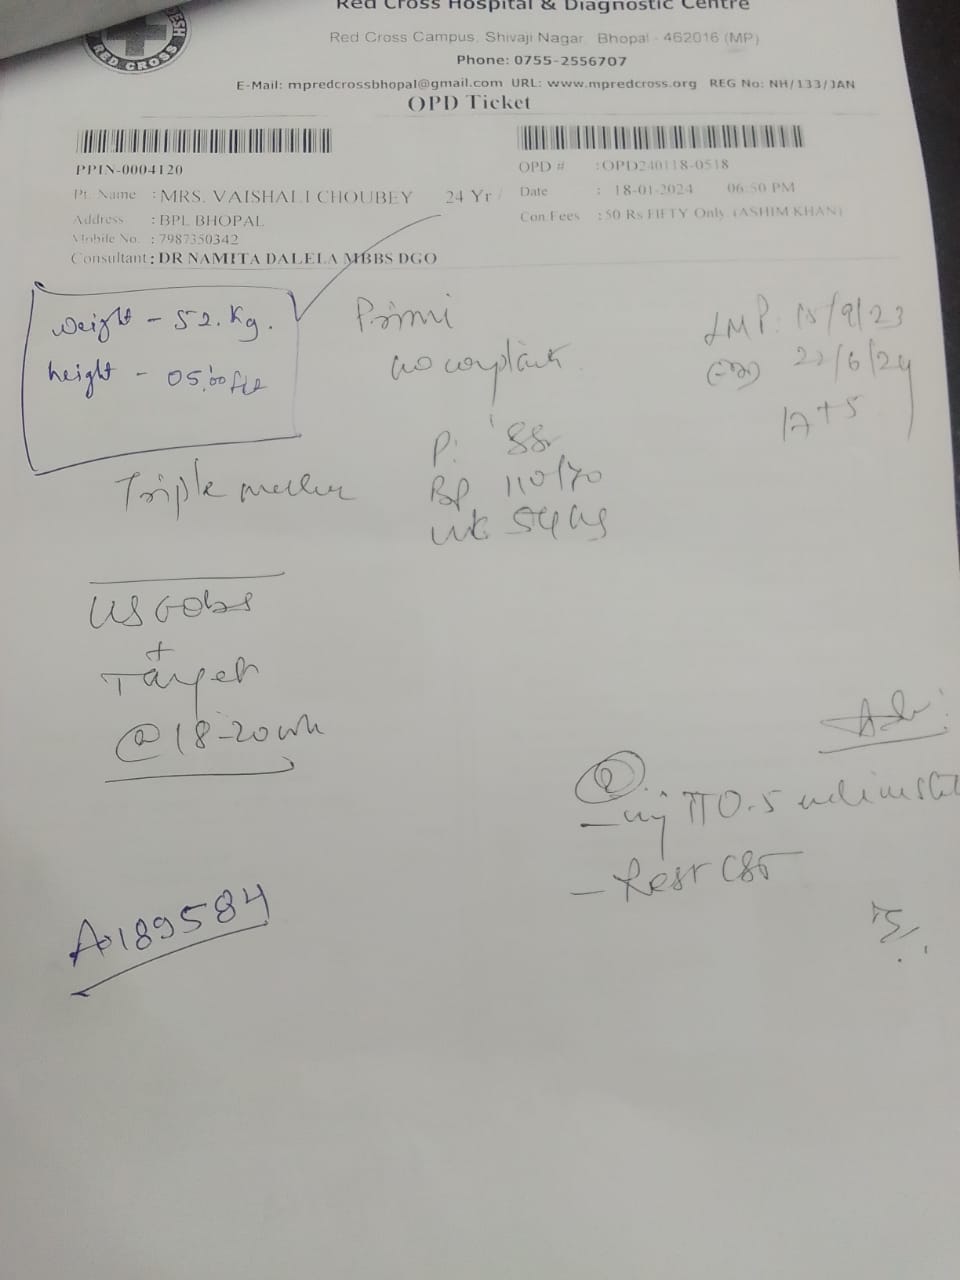 Red Cross Hospital & Diagnostic Centre
Red Cross Campus, Shivaji Nagar, Bhopal - 462016 (MP)
Phone: 0755-2556707
E-Mail: mpredcrossbhopal@gmail.com URL: www.mpredcross.org REG No: NH/133/JAN
RED CROSS
OPD Ticket
PPIN-0004120
OPD # : OPD240118-0518
Pt. Name : MRS. VAISHALI CHOUBEY 24 Yr /
Date : 18-01-2024 06:50 PM
Address : BPL BHOPAL
Con.Fees : 50 Rs FIFTY Only (ASHIM KHAN)
Mobile No. : 7987350342
Consultant : DR NAMITA DALELA MBBS DGO
weight - 52. Kg.
height - 05.
Primi
no complaint
LMP: 15/9/23
22/6/24
17+5
P: 88
BP 110/70
Wt 54 kg
Triple marker
USG Obs
+
Target
@ 18-20 wk
Adv:
2
- inj TT 0.5 ml
- Rest CST
A0189584